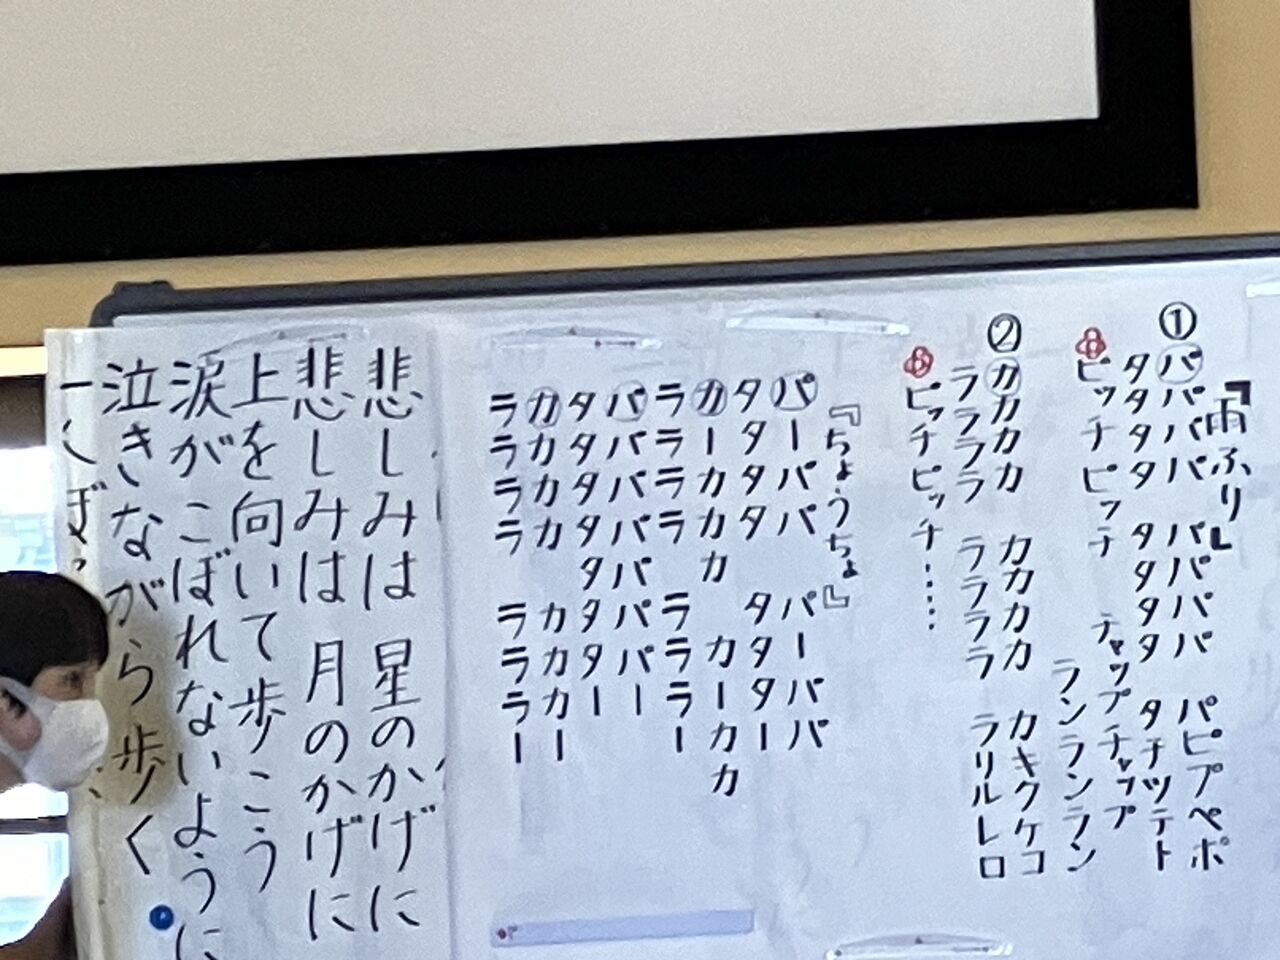 『雨ふり』
① パパパパ パパパパ パピプペポ
タタタタ タタタタ タチツテト
ピッチピッチ チャップチャップ
ランランラン
② カカカカ カカカカ カキクケコ
ララララ ララララ ラリルレロ
ピッチピッチ・・・・
『ちょうちょ』
パーパパ パーパパ
タータタ タタター
カーカカカ カーカカ
ラララララ ララー
パパパパパ パパー
タタタタタ タター
カカカカ カカカー
ララララ ラララー
悲しみは 星のかげに
悲しみは 月のかげに
上を向いて歩こう
涙がこぼれないように
泣きながら歩く